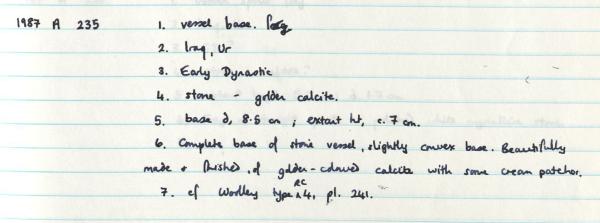 1987 A 235 1. vessel base.
2. Iraq, Ur
3. Early Dynastic
4. stone - golden calcite.
5. base d, 8.5 cm ; extant ht, c. 7 cm.
6. Complete base of stone vessel, slightly convex base. Beautifully
made & finished, of golden-coloured calcite with some cream patches.
7. cf Woolley type RC 4, pl. 241.